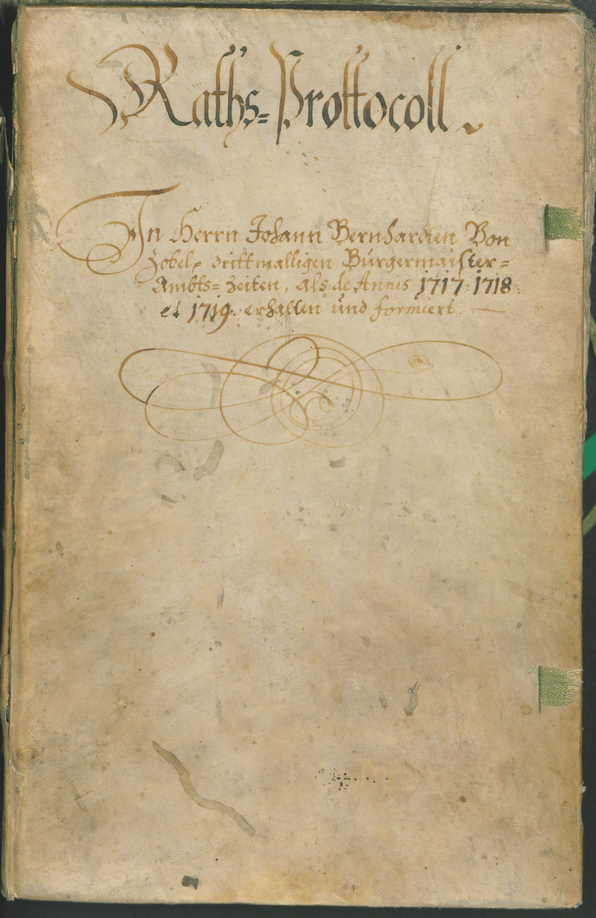 Raths=Prottocoll.
In Herrn Johann Bernhardten Von
Zobel, drittmalligen Burgermaister=
Ambts=Zeiten, als de Annis 1717. 1718.
et 1719. erhalten und formiert.